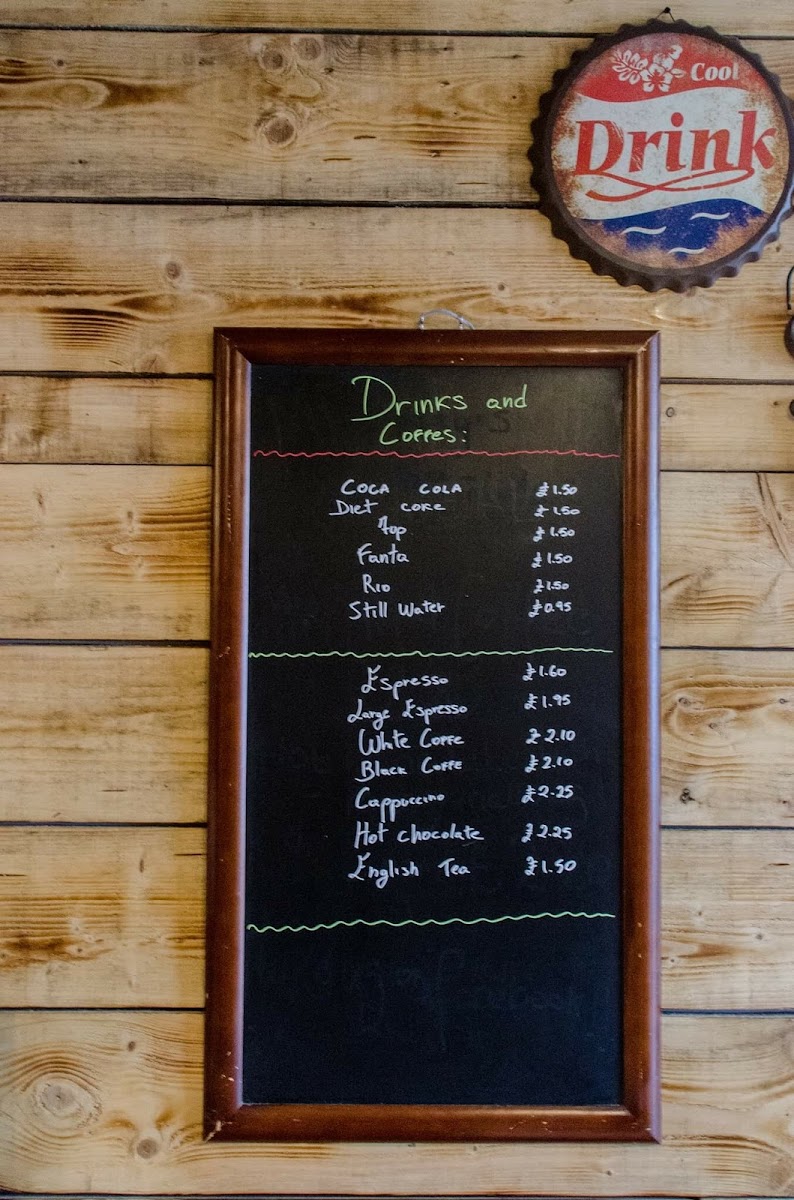 Cool
Drink
Drinks and
Coffes:
Coca cola £1.50
Diet coke £1.50
7up £1.50
Fanta £1.50
Rio £1.50
Still Water £0.95
Espresso £1.60
Large Espresso £1.95
White Coffe £2.10
Black Coffe £2.10
Cappuccino £2.25
Hot chocolate £2.25
English Tea £1.50